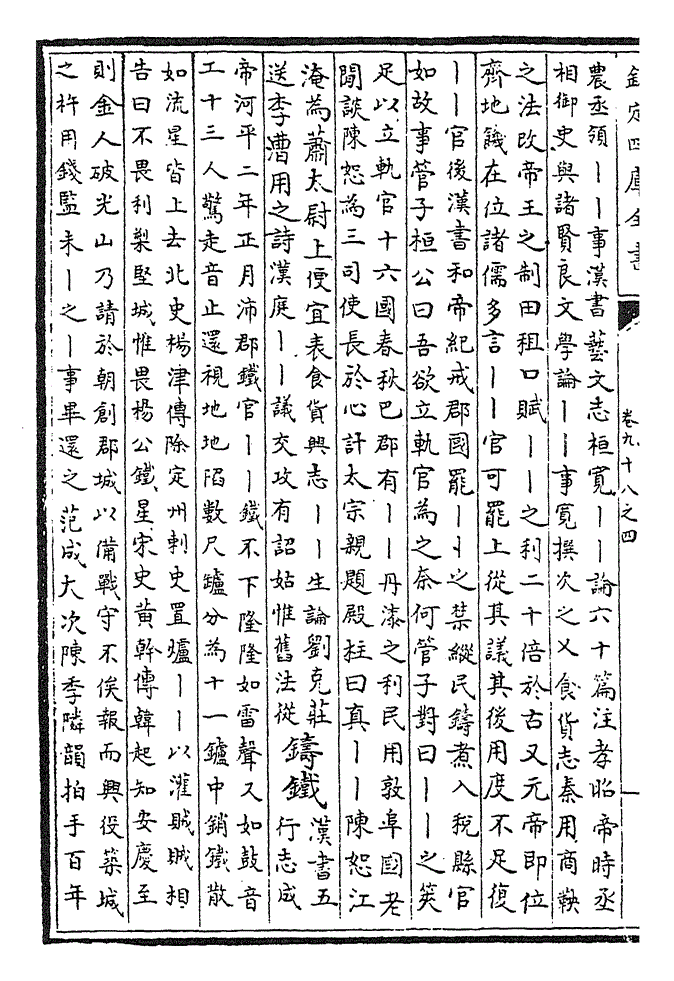 欽定四庫全書 卷九十八之四
農丞領丨丨事漢書藝文志桓寬丨丨論六十篇注孝昭帝時丞
相御史與諸賢良文學論丨丨事寬撰次之又食貨志秦用商鞅
之法改帝王之制田租口賦丨丨之利二十倍於古又元帝即位
齊地饑在位諸儒多言丨丨官可罷上從其議其後用度不足復
丨丨官後漢書和帝紀戒郡國罷丨丨之禁縱民鑄煮入稅縣官
如故事管子桓公曰吾欲立軌官為之奈何管子對曰丨丨之筴
足以立軌官十六國春秋巴郡有丨丨丹漆之利民用敦阜國老
閒談陳恕為三司使長於心計太宗親題殿柱曰真丨丨陳恕江
淹為蕭太尉上便宜表食貨興志丨丨生論劉克莊
送李漕用之詩漢庭丨丨議交攻有詔姑惟舊法從
鑄鐵
漢書五
行志成
帝河平二年正月沛郡鐵官丨丨鐵不下隆隆如雷聲又如鼓音
工十三人驚走音止還視地地陷數尺鑪分為十一鑪中銷鐵散
如流星皆上去北史楊津傳除定州刺史置爐丨丨以灌賊賊相
告曰不畏利槊堅城惟畏楊公鐵星宋史黃幹傳韓起知安慶至
則金人破光山乃請於朝創郡城以備戰守不俟報而興役築城
之杵用錢監未丨之丨事畢還之范成大次陳季隣韻拍手百年